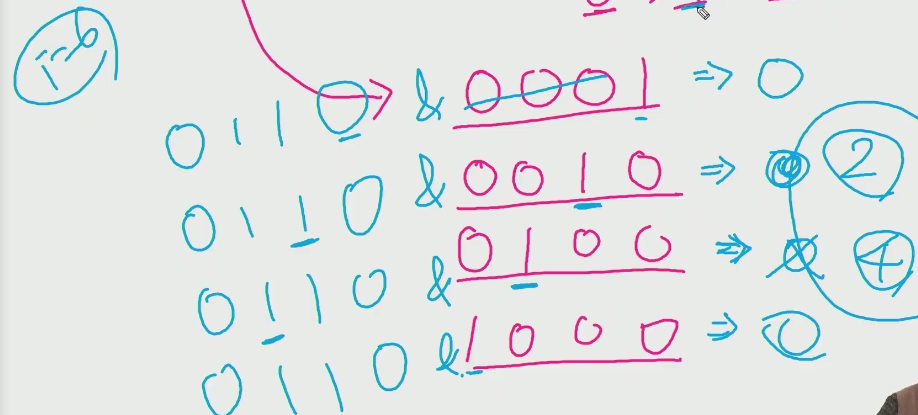 i=6
0110 & 0001 => 0
0110 & 0010 => 2
0110 & 0100 => 4
0110 & 1000 => 0